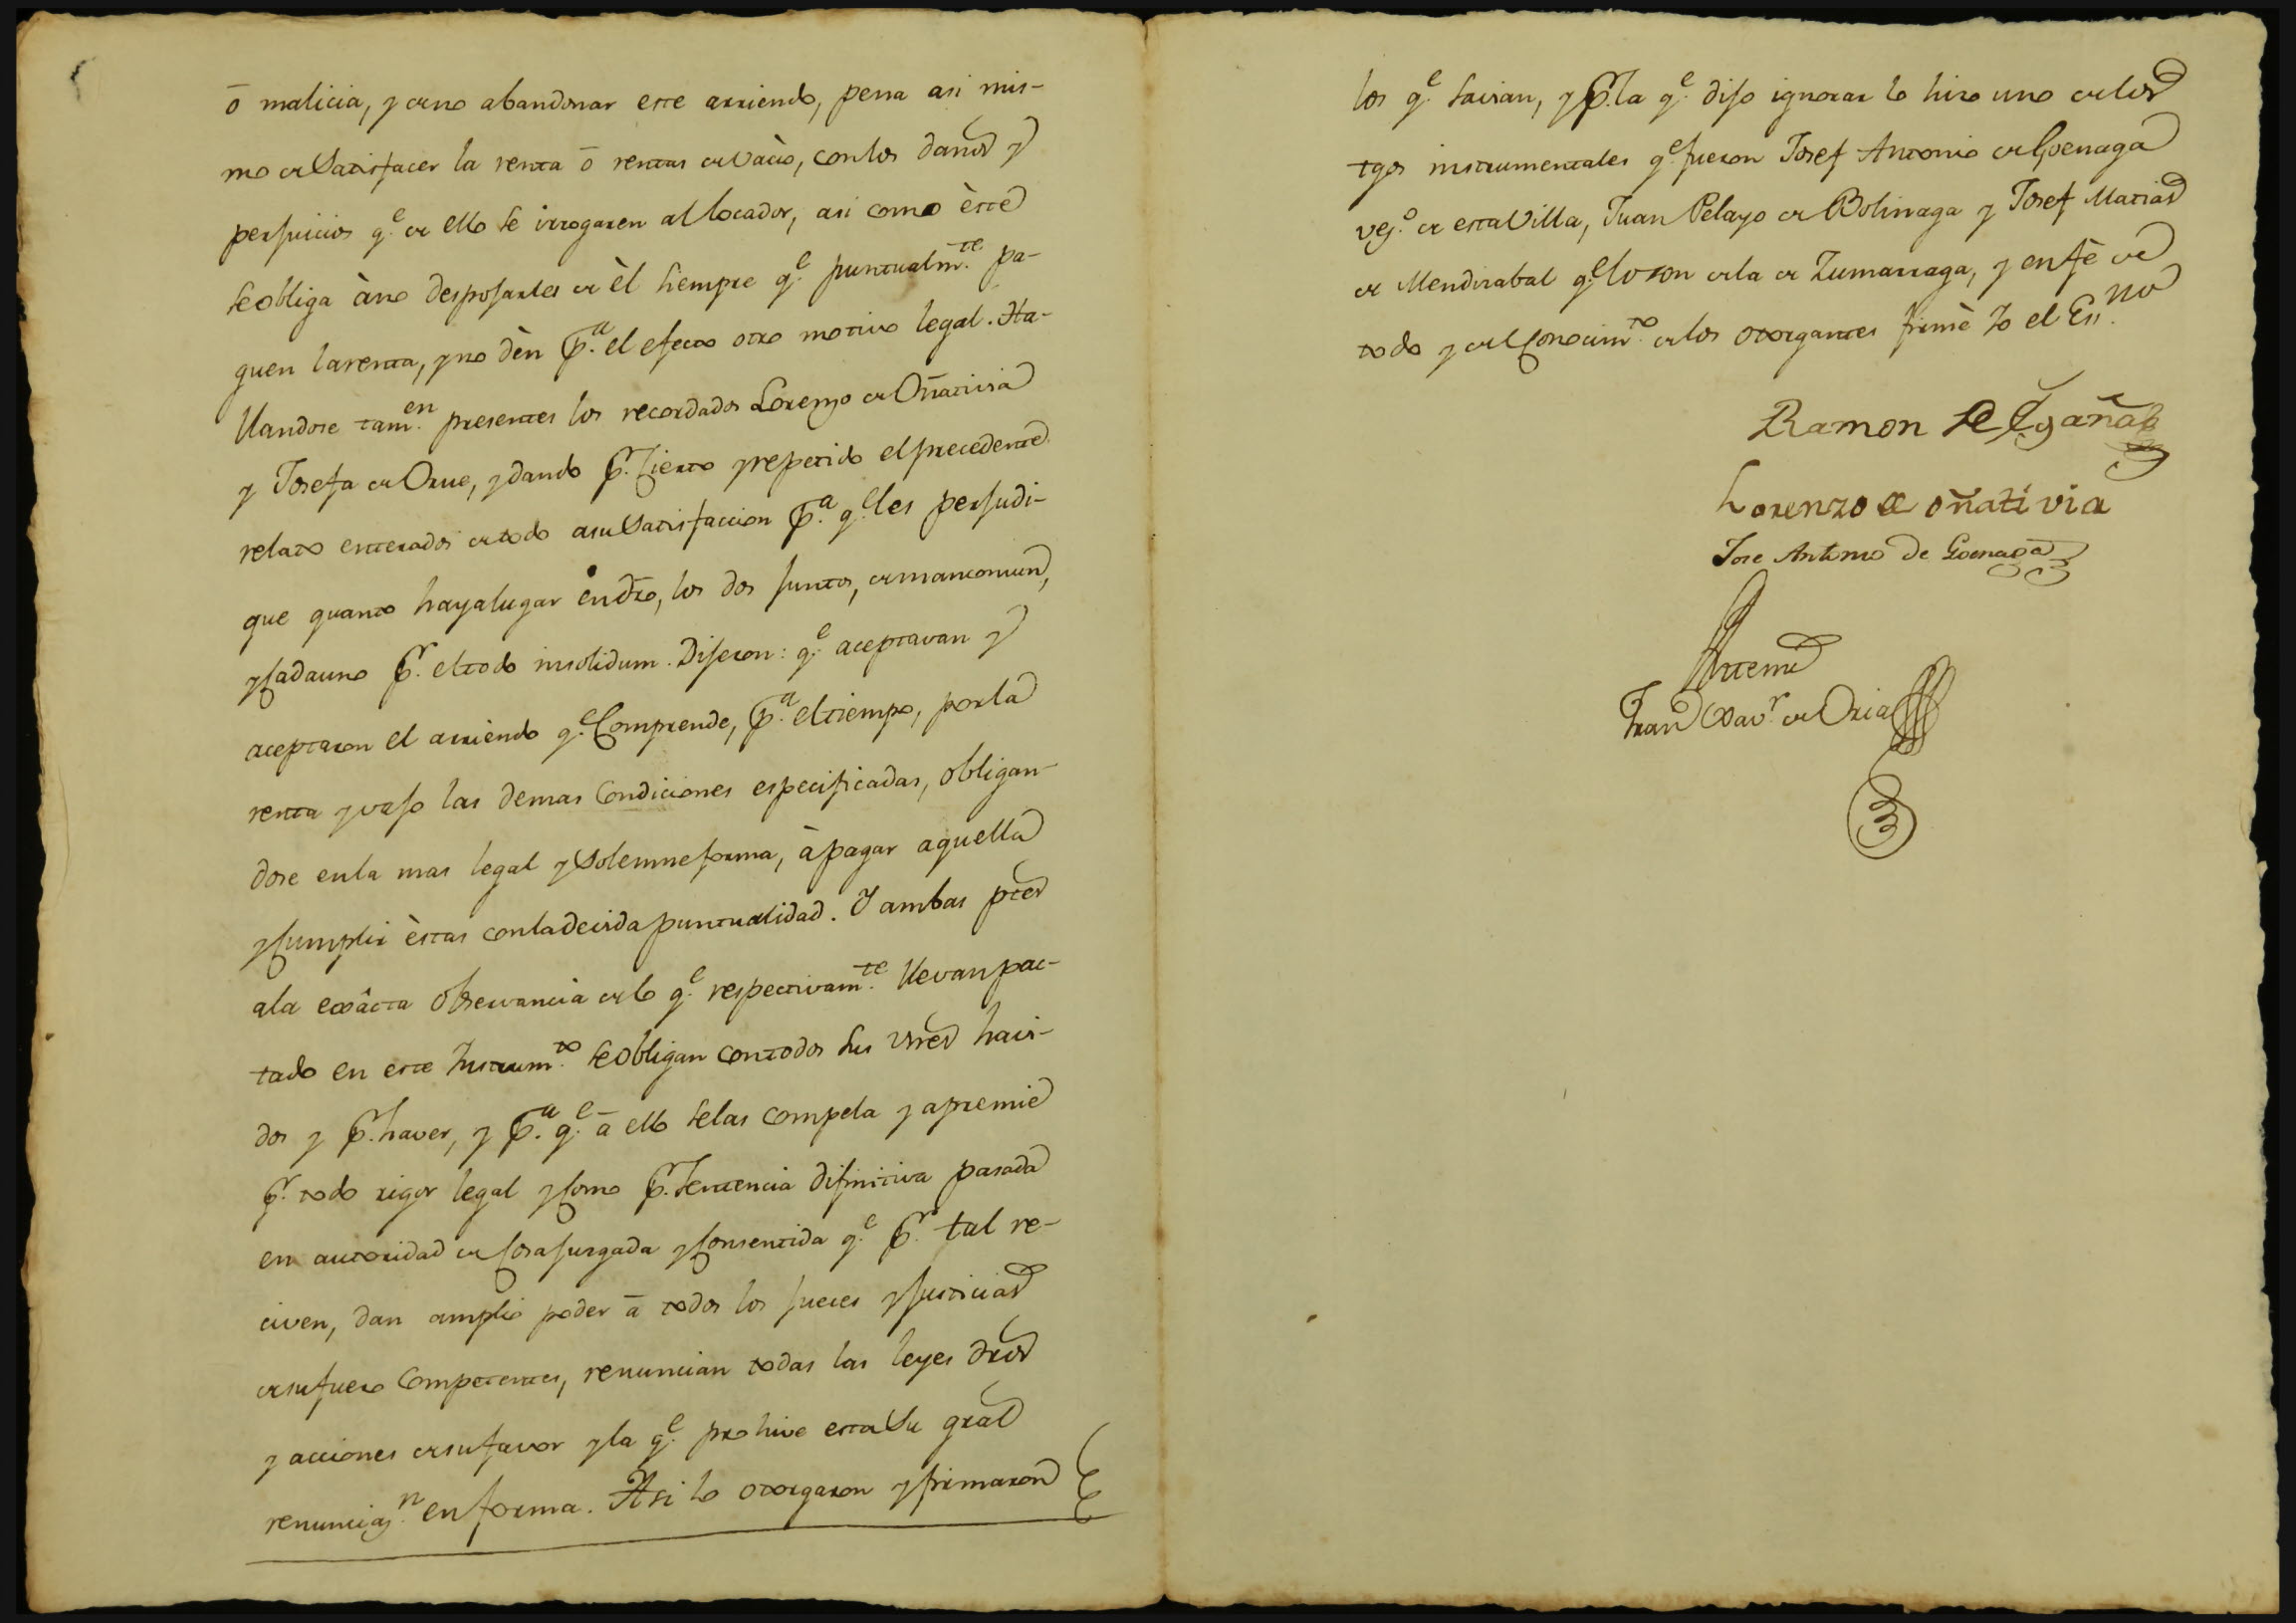 ō malicia, y de no abandonar este arriendo, pena asi mis-
mo de Satisfacer la renta ō rentas de vacio, con los daños y
perjuicios q.e de ello se irrogaren al locador, asi como èste
se obliga à no despojarles de èl siempre q.e puntualm.te pa-
guen la renta, y no dèn p.a el efecto otro motivo legal. Ha-
llandose tam.en presentes los recordados Lorenzo de Oñativia
y Josefa de Orue, y dando p.r Cierto y repetido el precedente
relato enterados de todo a su Satisfaccion p.a q.e les perjudi-
que quanto haya lugar en dro, los dos juntos, de mancomun,
y Cada uno p.r el todo insolidum. Dijeron: q.e aceptavan y
aceptaron el arriendo q.e Comprende, p.a el tiempo, por la
renta y vajo las demas Condiciones especificadas, obligan-
dose en la mas legal y Solemne forma, à pagar aquella
y Cumplir èstas con la devida puntualidad. Y ambas ptes
a la exâcta observancia de lo q.e respectivam.te llevan pac-
tado en este Instrum.to se obligan con todos sus vnes havi-
dos y p.r haver, y p.a q.e ā ello se las compela y apremie
p.r todo rigor legal y Como p.r Sentencia difinitiva pasada
en autoridad de Cosa juzgada y Consentida q.e p.r tal re-
civen, dan amplio poder ā todos los jueces y justicias
de su fuero Competentes, renuncian todas las leyes dros
y acciones de su favor y la q.e prohive esta Su gral
renunciaz.n en forma. Asi lo otorgaron y firmaron
los q.e savian, y p.r la q.e dijo ignorar lo hizo uno de los
tgos instrumentales q.e fueron Josef Antonio de Goenaga
vez.o de esta Villa, Juan Pelayo de Bolinaga y Josef Matias
de Mendizabal q.e lo son de la de Zumarraga, y en fè de
todo y del Conocim.to de los otorgantes firmè Yo el Ess.no
Ramon de Egaña
Lorenzo de oñati via
Jose Antonio de Goenaga
Ante mi
Fran Xav.r de Oria